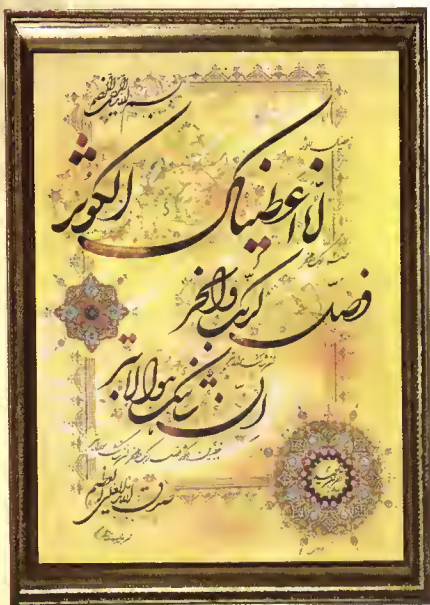 بسم الله الرحمن الرحیم
انا اعطیناک الکوثر
فصل لربک وانحر
ان شانئک هو الابتر
صدق الله العلی العظیم